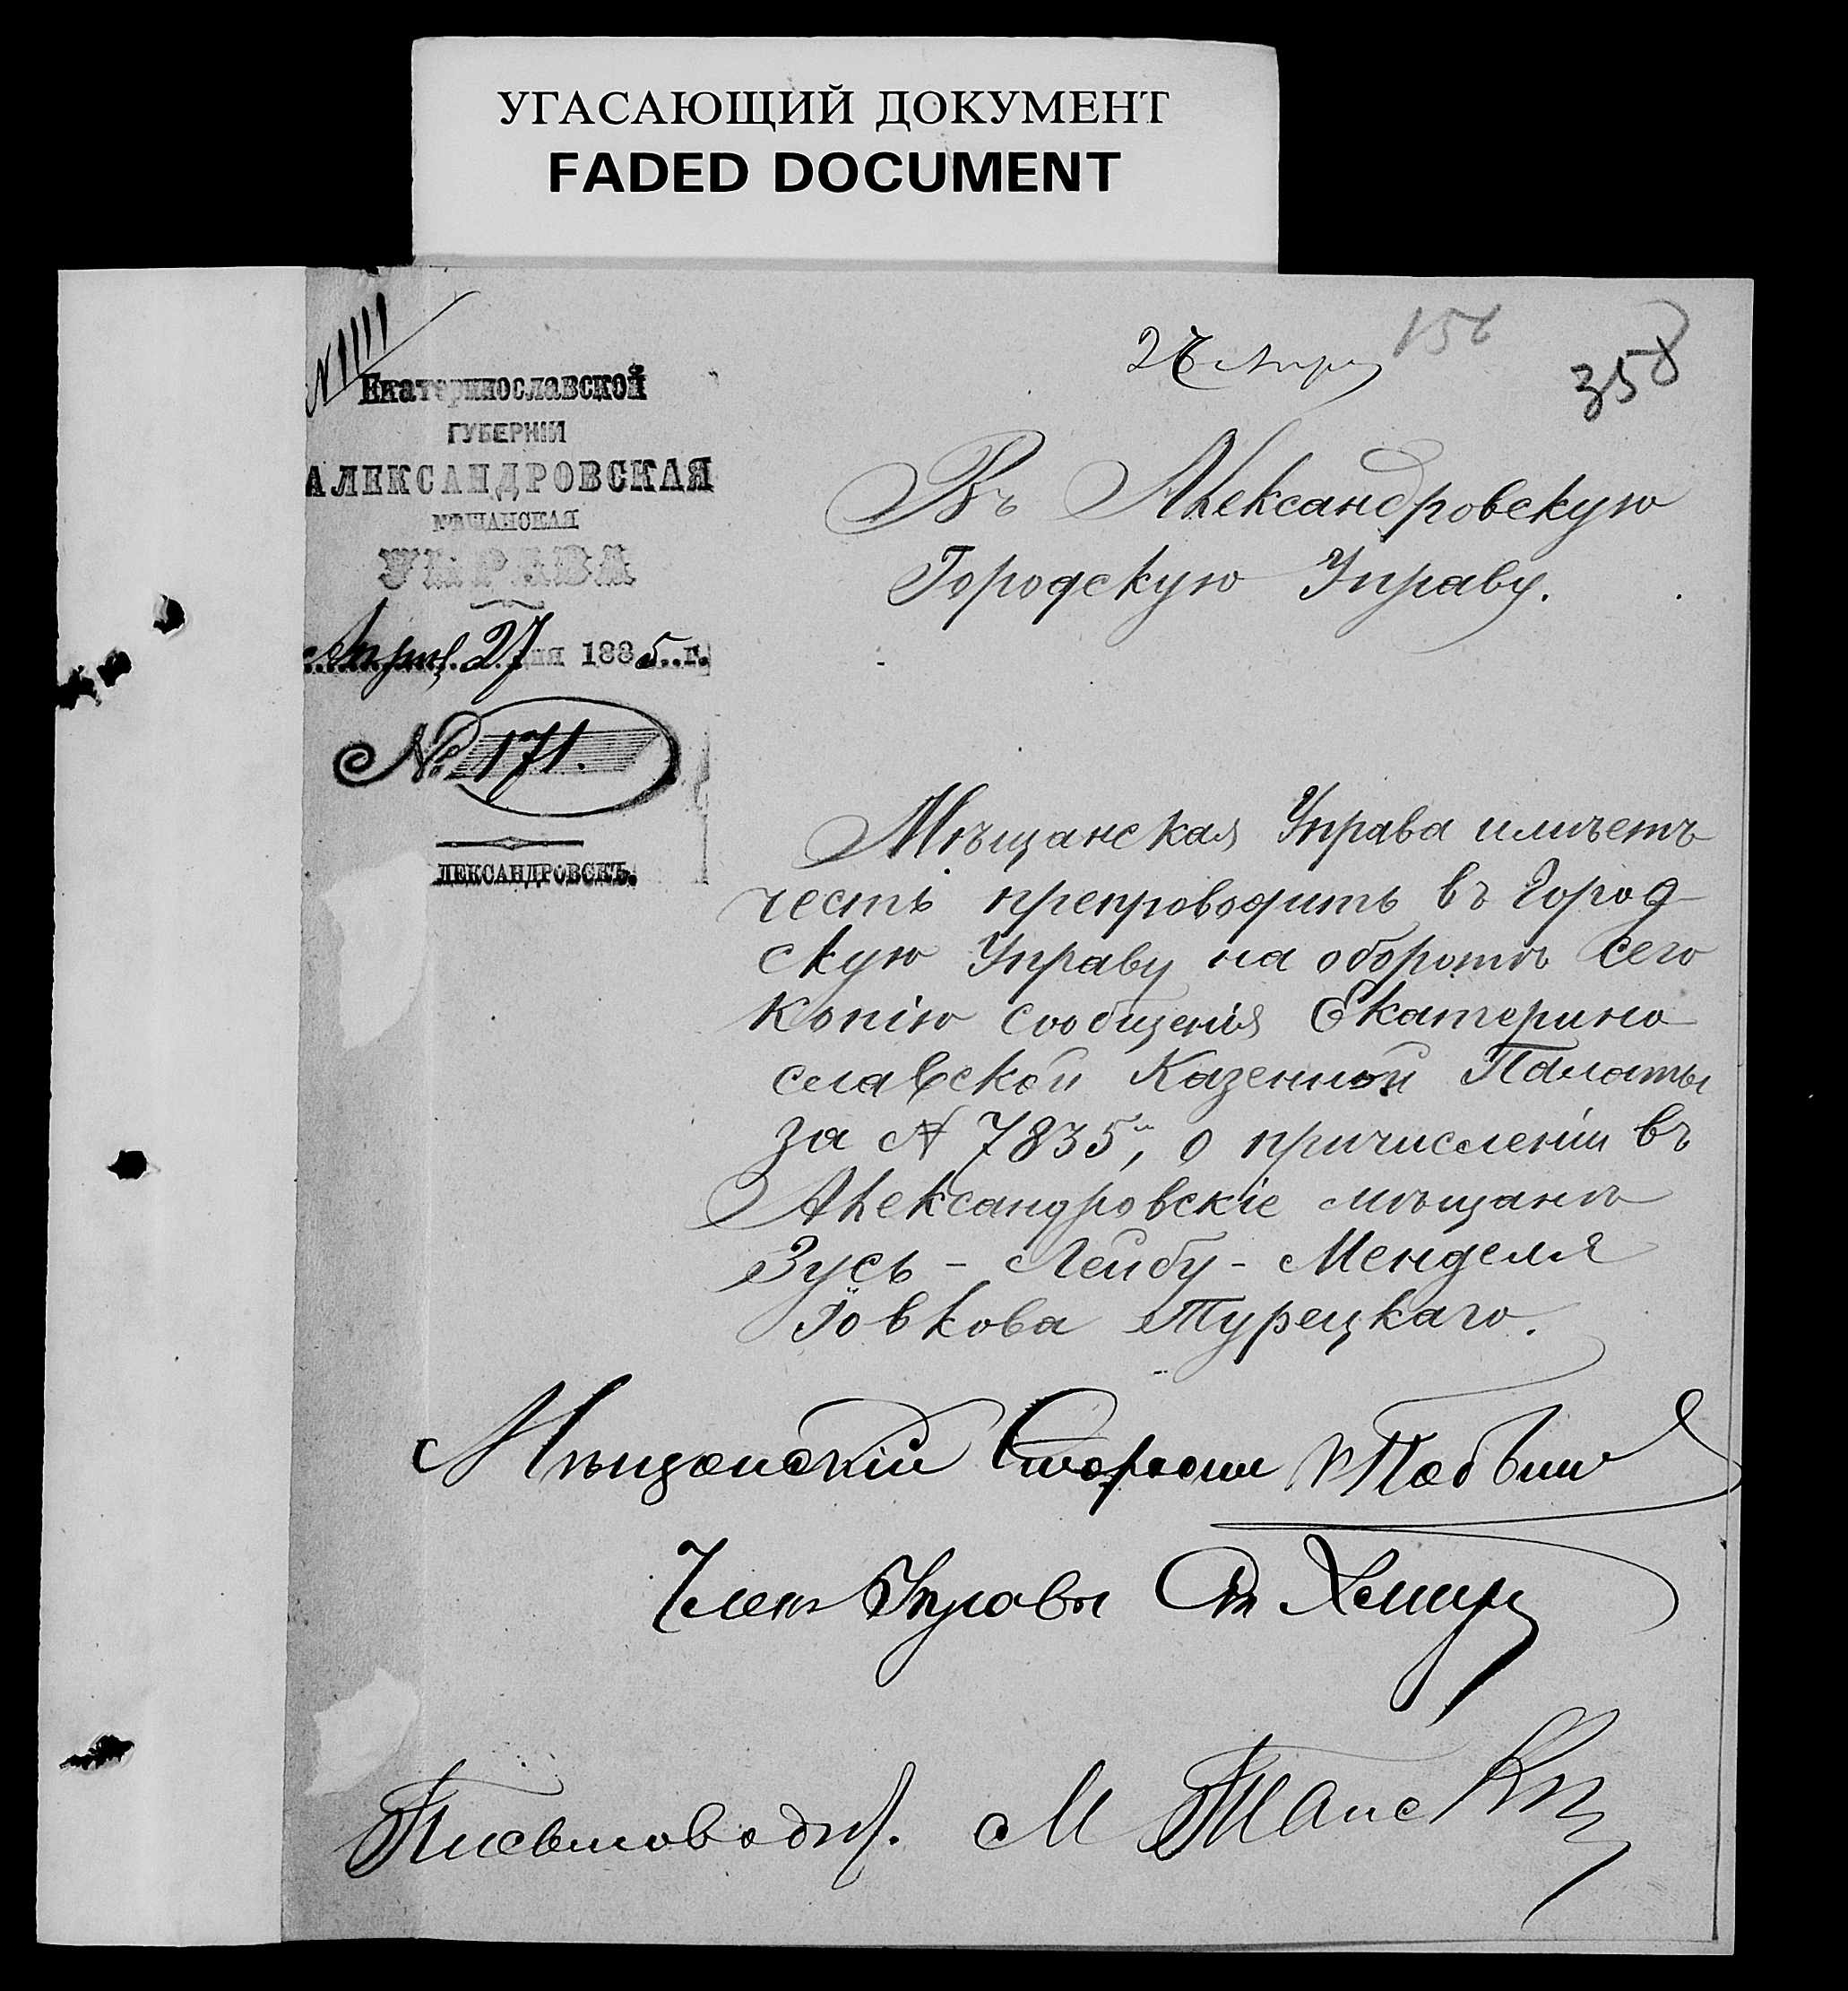 УГАСАЮЩИЙ ДОКУМЕНТ
FADED DOCUMENT
N 1111
156
358
Екатеринославской
ГУБЕРНІИ
АЛЕКСАНДРОВСКАЯ
МѢЩАНСКАЯ
УПРАВА
27 дня 1885 г.
№ 171.
ЛЕКСАНДРОВСКЪ.
Въ Александровскую
Городскую Управу.
Мѣщанская Управа имѣетъ
честь препроводить въ Город-
скую Управу на оборотѣ сего
копію сообщенія Екатерино-
славской Казенной Палаты
за № 7835, о причисленіи въ
Александровскіе мѣщане
Зусь - Лейбу - Менделя
Іовкова Турецкаго.
Мѣщанскій Староста
Членъ Управы
Письмоводит. М